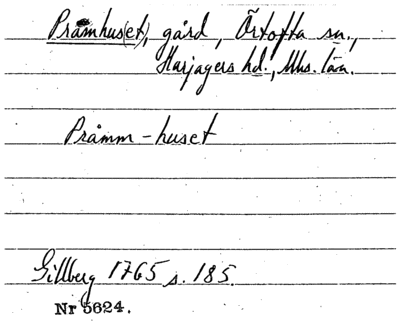 Pråmhus(et), gård, Örtofta sn.,
Harjagers hd., Mhs. län.
Pråmm-huset
Gillberg 1765 s. 185.
Nr 5624.